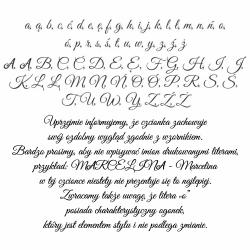 a, ą, b, c, ć, d, e, ę, f, g, h, i, j, k, l, ł, m, n, ń, o,
ó, p, r, s, ś, t, u, w, y, z, ź, ż
A, Ą, B, C, Ć, D, E, Ę, F, G, H, I, J
K, L, Ł, M, N, Ń, O, Ó, P, R, S, Ś,
T, U, W, Y, Z, Ź, Ż
Uprzejmie informujemy, że czcionka zachowuje
swój ozdobny wygląd zgodnie z wzornikiem.
Bardzo prosimy, aby nie wpisywać imion drukowanymi literami,
przykład: MARCELINA - Marcelina
w tej czcionce niestety nie prezentuje się to najlepiej.
Zwracamy także uwagę, że litera "o"
posiada charakterystyczny ogonek,
który jest elementem stylu i nie podlega zmianie.